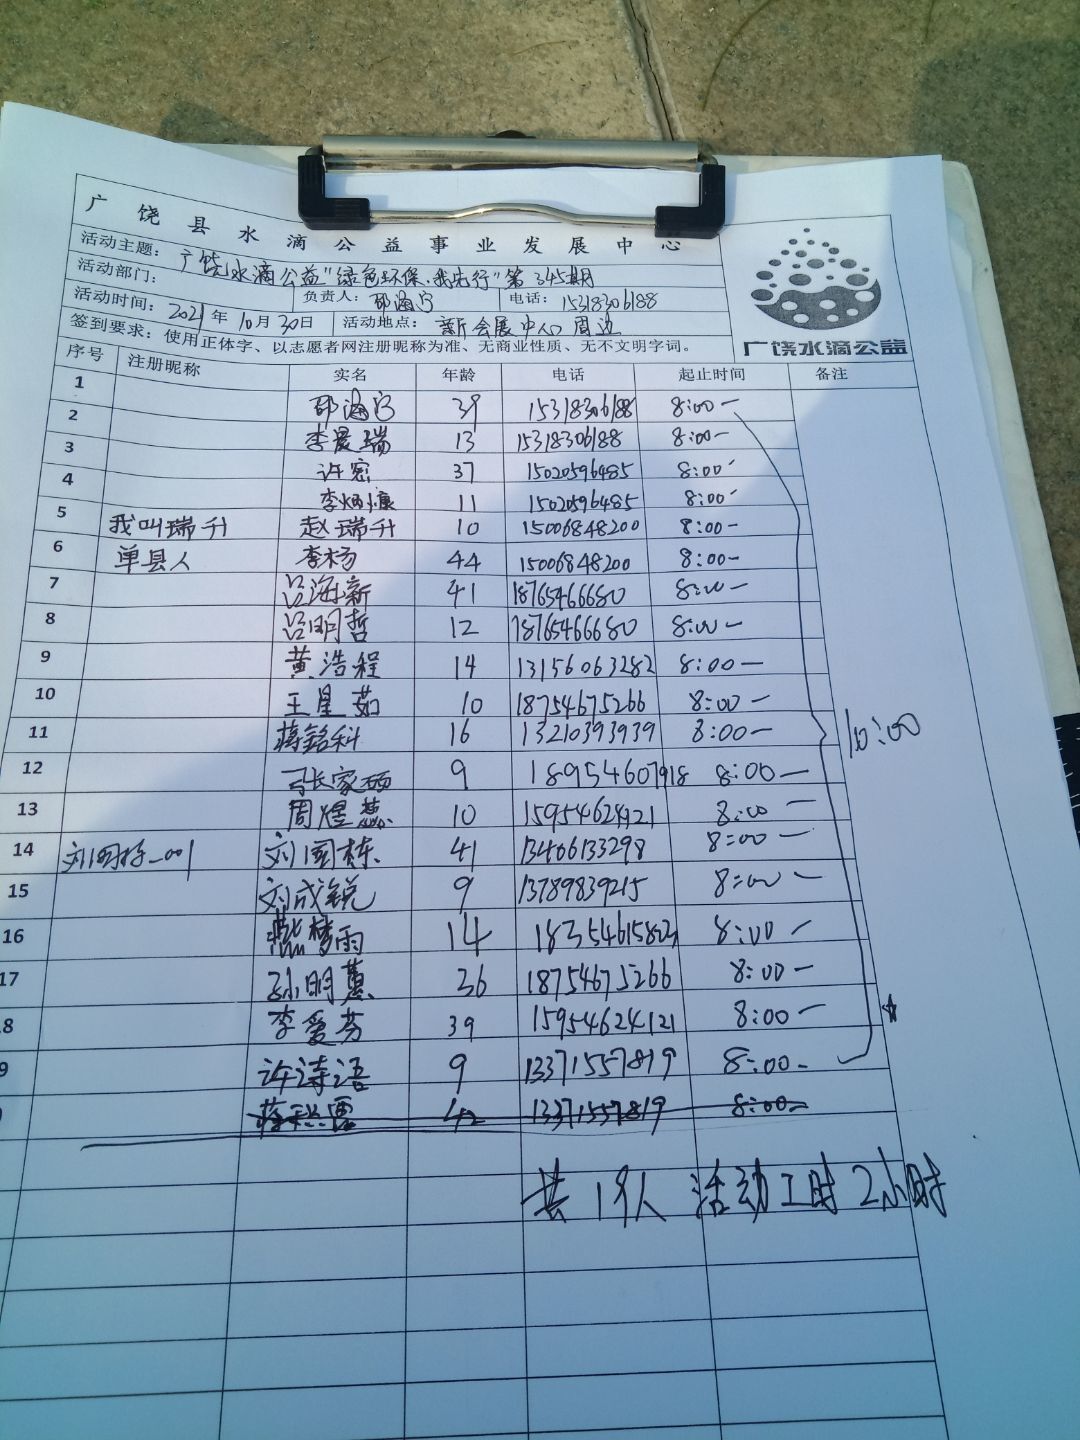 广饶县水滴公益事业发展中心
活动主题：广饶水滴公益"绿色环保.我先行"第345期
活动部门： 负责人：邵海宁 电话：15318306188
活动时间：2021年10月30日 活动地点：新会展中心周边
签到要求：使用正体字、以志愿者网注册昵称为准、无商业性质、无不文明字词。
广饶水滴公益
序号 注册昵称 实名 年龄 电话 起止时间 备注
1 邵海宁 39 15318306188 8:00-
2 李晨瑞 13 15318306188 8:00-
3 许密 37 15020596485 8:00-
4 李炳 11 15020596485 8:00-
5 我叫瑞升 赵瑞升 10 15006848200 8:00-
6 单县人 李杨 44 15006848200 8:00-
7 吕海新 41 18765466680 8:00-
8 吕明哲 12 18765466680 8:00-
9 黄浩程 14 13156063282 8:00-
10 王星茹 10 18754675266 8:00-
11 蒋铭科 16 13210393939 8:00-
12 家硕 9 18954607918 8:00-
13 周煜蕊 10 8:00-
14 刘国栋_001 刘国栋 41 13406133298 8:00-
15 刘成锐 9 13789839215 8:00-
16 燕梦雨 14 8:00-
17 孙明慧 36 18754675266 8:00-
18 李爱芬 39 15954624121 8:00-
9 许诗语 9 13371557819 8:00-
42 13371557819 8:00-
10:00
共19人 活动工时2小时